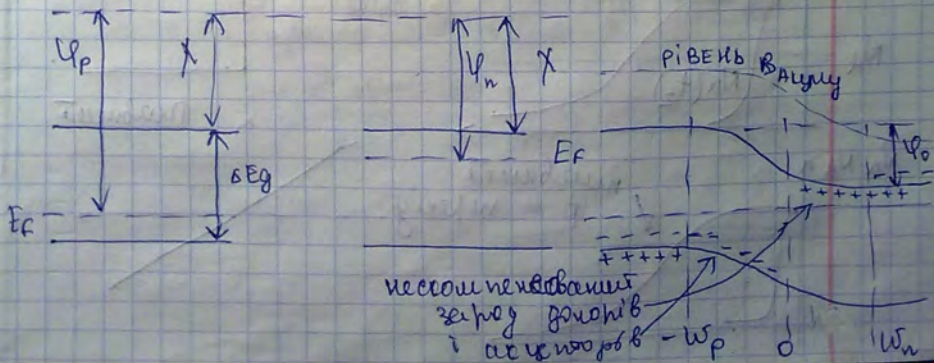 φp
χ
φn
χ
РІВЕНЬ ВАКУМУ
φ0
ΔEg
Ef
Ef
нескомпенсований
заряд донорів
і акцепторів
-Wp
0
Wn